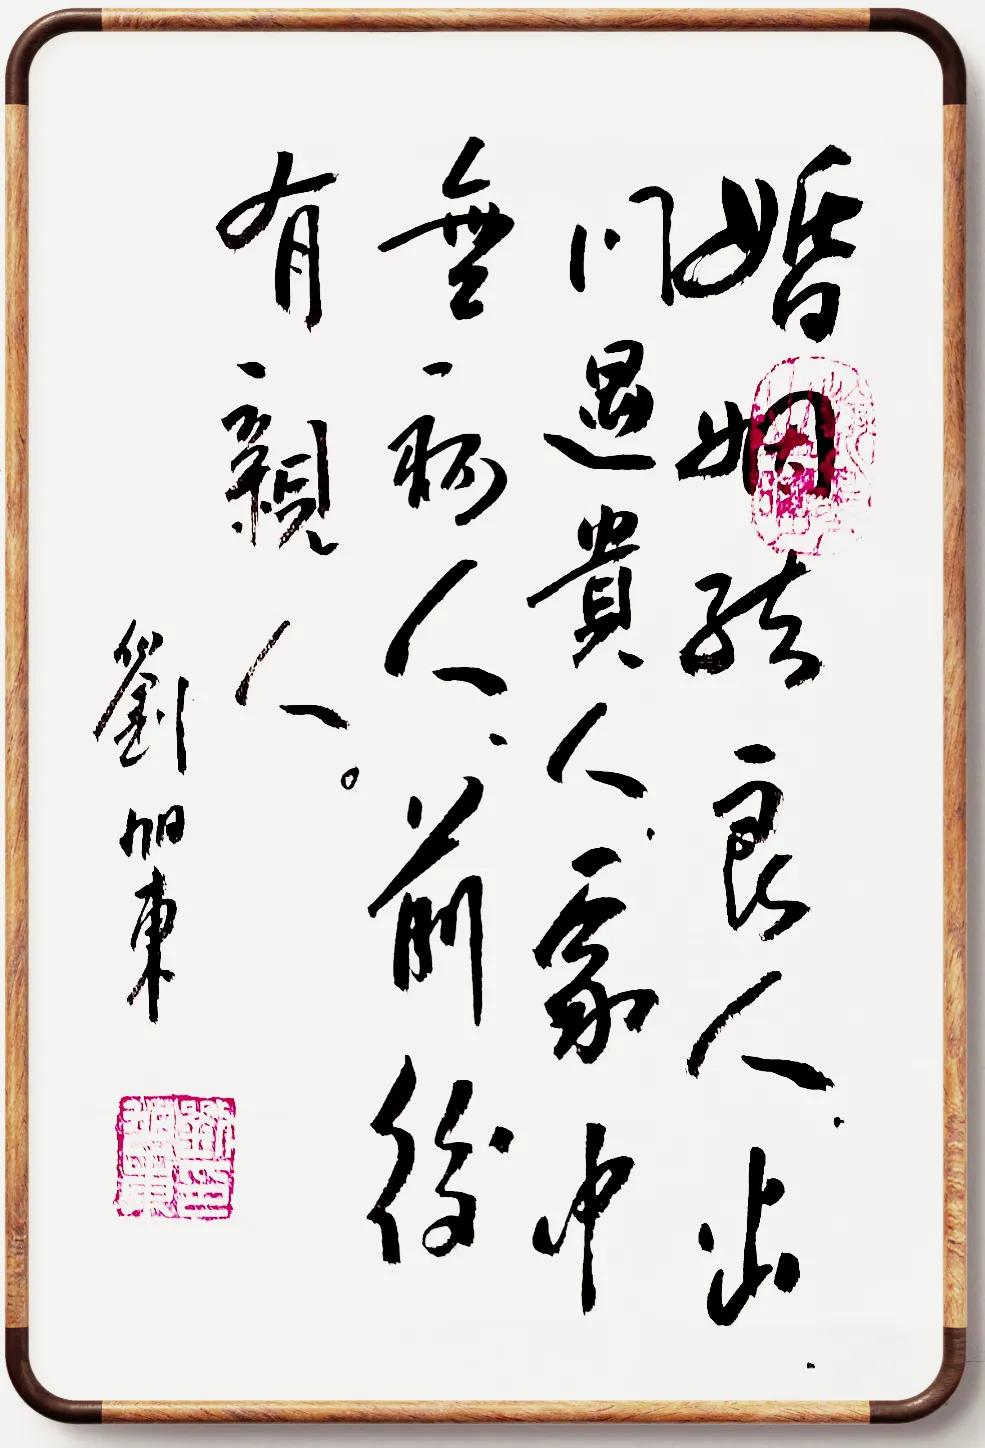 婚姻結良人，出
门遇貴人，家中
無病人、前後
有親人。
劉旭東